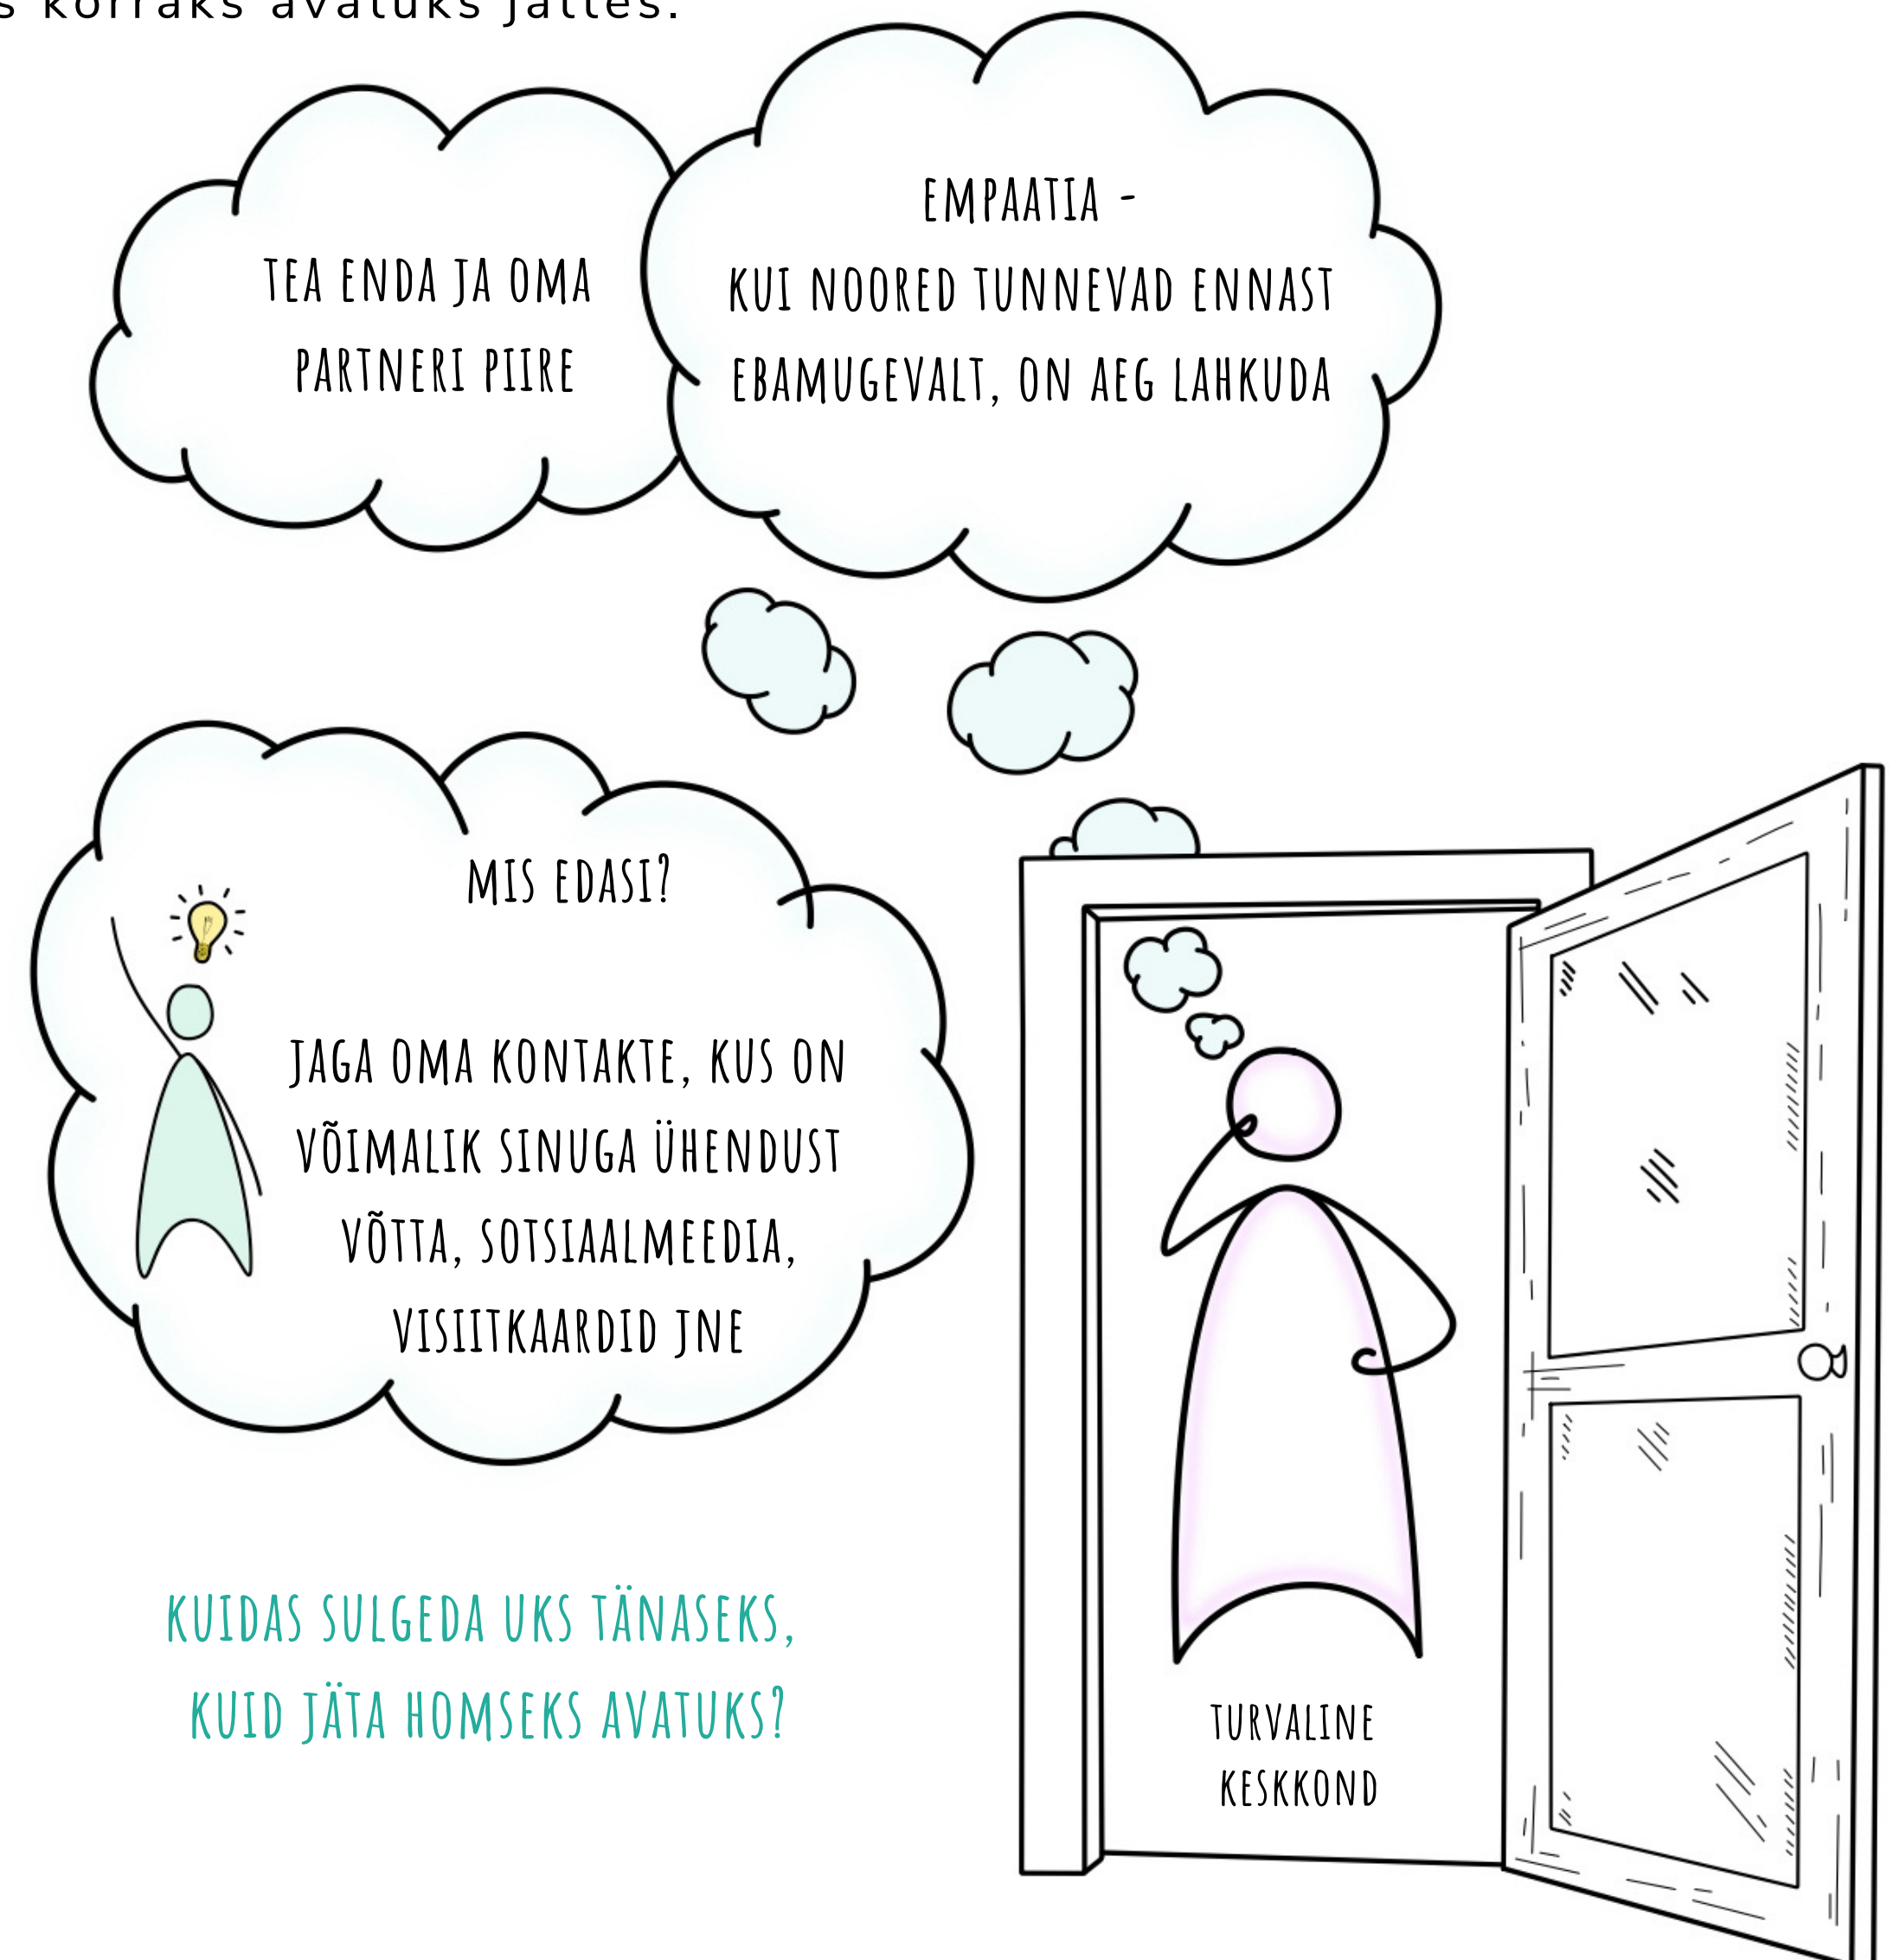 s korraks avatuks jättes.
TEA ENDA JA OMA
PARTNERI PIIRE
EMPAATIA -
KUI NOORED TUNNEVAD ENNAST
EBAMUGEVALT, ON AEG LAHKUDA
MIS EDASI?
JAGA OMA KONTAKTE, KUS ON
VÕIMALIK SINUGA ÜHENDUST
VÕTTA, SOTSIAALMEEDIA,
VISIITKAARDID JNE
KUIDAS SULGEDA UKS TÄNASEKS,
KUID JÄTA HOMSEKS AVATUKS?
TURVALINE
KESKKOND